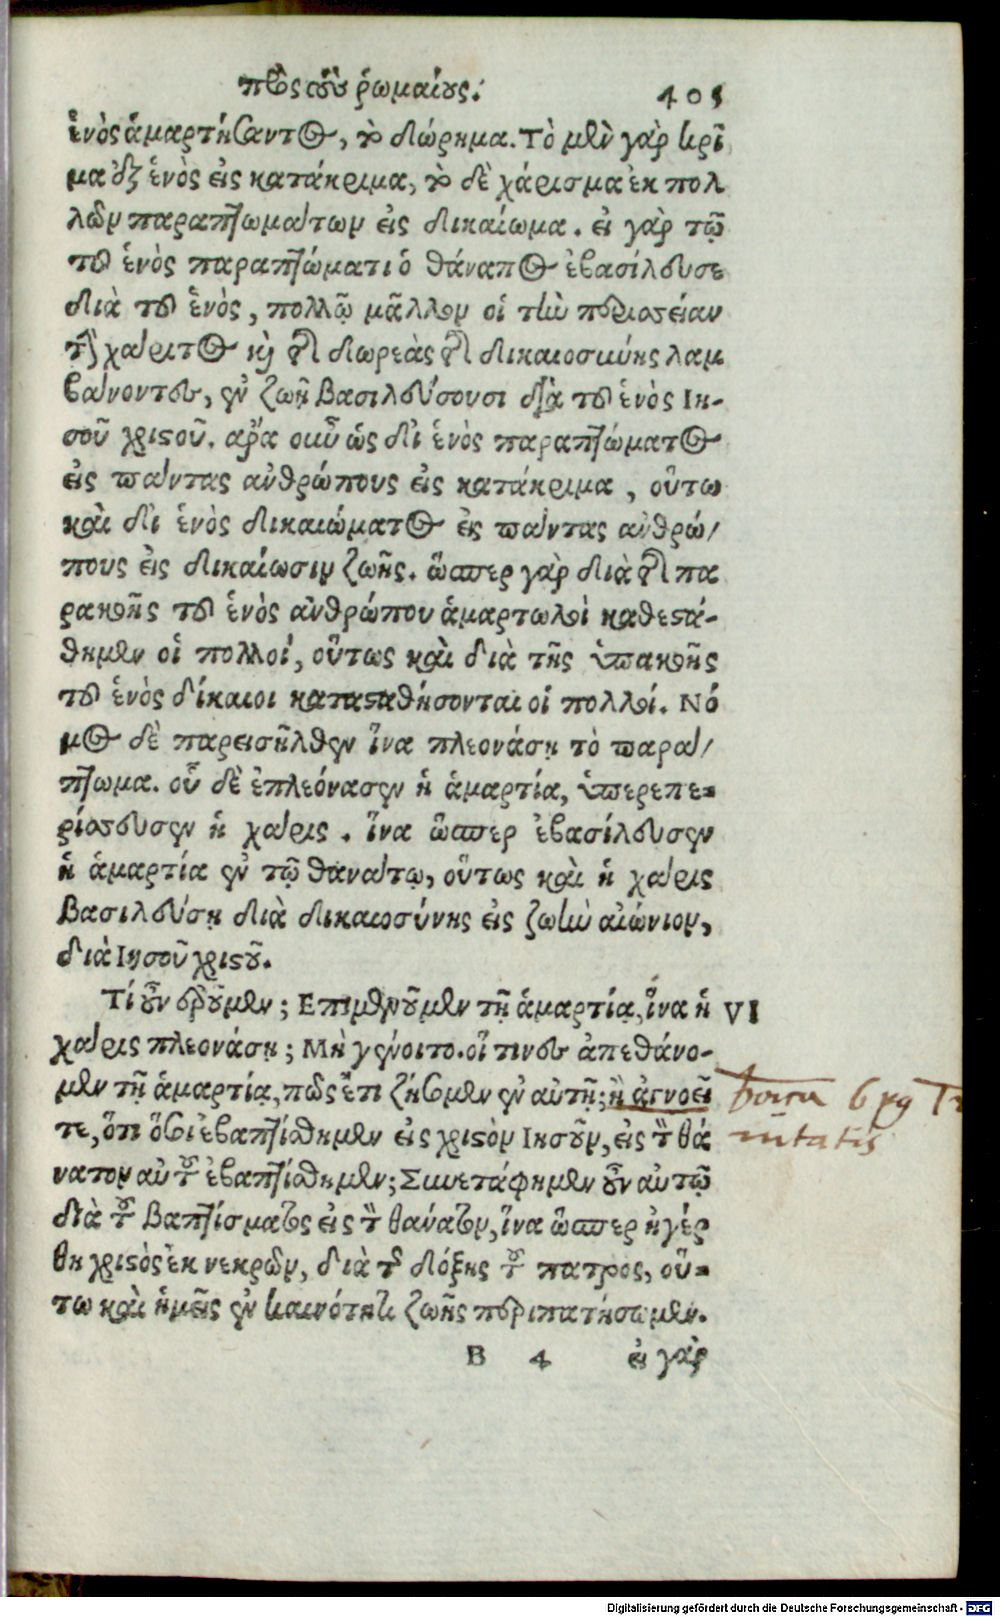 πρὸς τοὺς ῥωμαίους. 405
ἑνὸς ἁμαρτήσαντος, τὸ δώρημα. Τὸ μὲν γὰρ κρῖ
μα ἐξ ἑνὸς εἰς κατάκριμα, τὸ δὲ χάρισμα ἐκ πολ
λῶν παραπτωμάτων εἰς δικαίωμα. εἰ γὰρ τῷ
τοῦ ἑνὸς παραπτώματι ὁ θάνατος ἐβασίλευσε
διὰ τοῦ ἑνὸς, πολλῷ μᾶλλον οἱ τὴν περισσείαν
τῆς χάριτος καὶ τῆς δωρεᾶς τῆς δικαιοσύνης λαμ
βάνοντες, ἐν ζωῇ βασιλεύσουσι διὰ τοῦ ἑνὸς Ιη-
σοῦ χριστοῦ. ἄρα οὖν ὡς δι ἑνὸς παραπτώματος
εἰς πάντας ἀνθρώπους εἰς κατάκριμα, οὕτω
καὶ δι ἑνὸς δικαιώματος εἰς πάντας ἀνθρώ/
πους εἰς δικαίωσιν ζωῆς. ὥσπερ γὰρ διὰ τῆς πα
ρακοῆς τοῦ ἑνὸς ἀνθρώπου ἁμαρτωλοὶ κατεστά-
θημεν οἱ πολλοί, οὕτως καὶ διὰ τῆς ὑπακοῆς
τοῦ ἑνὸς δίκαιοι κατασταθήσονται οἱ πολλοί. Νό
μος δὲ παρεισῆλθεν ἵνα πλεονάσῃ τὸ παρά/
πτωμα. οὗ δὲ ἐπλεόνασεν ἡ ἁμαρτία, ὑπερεπε-
ρίσσευσεν ἡ χάρις. ἵνα ὥσπερ ἐβασίλευσεν
ἡ ἁμαρτία ἐν τῷ θανάτῳ, οὕτως καὶ ἡ χάρις
βασιλεύσῃ διὰ δικαιοσύνης εἰς ζωὴν αἰώνιον,
διὰ Ιησοῦ χριστοῦ.
Τί οὖν ἐροῦμεν; Επιμενοῦμεν τῇ ἁμαρτίᾳ, ἵνα ἡ VI
χάρις πλεονάσῃ; Μὴ γένοιτο. οἵ τινες ἀπεθάνο-
μεν τῇ ἁμαρτίᾳ, πῶς ἔτι ζήσωμεν ἐν αὐτῇ; ἢ ἀγνοεῖ
τε, ὅτι ὅσοι ἐβαπτίσθημεν εἰς χριστὸν Ιησοῦν, εἰς τὸν θά
νατον αὐτοῦ ἐβαπτίσθημεν; Συνετάφημεν οὖν αὐτῷ
διὰ τοῦ βαπτίσματος εἰς τὸν θάνατον, ἵνα ὥσπερ ἠγέρ
θη χριστὸς ἐκ νεκρῶν, διὰ τῆς δόξης τοῦ πατρος, οὕ-
τω καὶ ἡμεῖς ἐν καινότητι ζωῆς περιπατήσωμεν.
B 4 εἰ γὰρ
6 Tri
nitatis
Digitalisierung gefördert durch die Deutsche Forschungsgemeinschaft - DFG